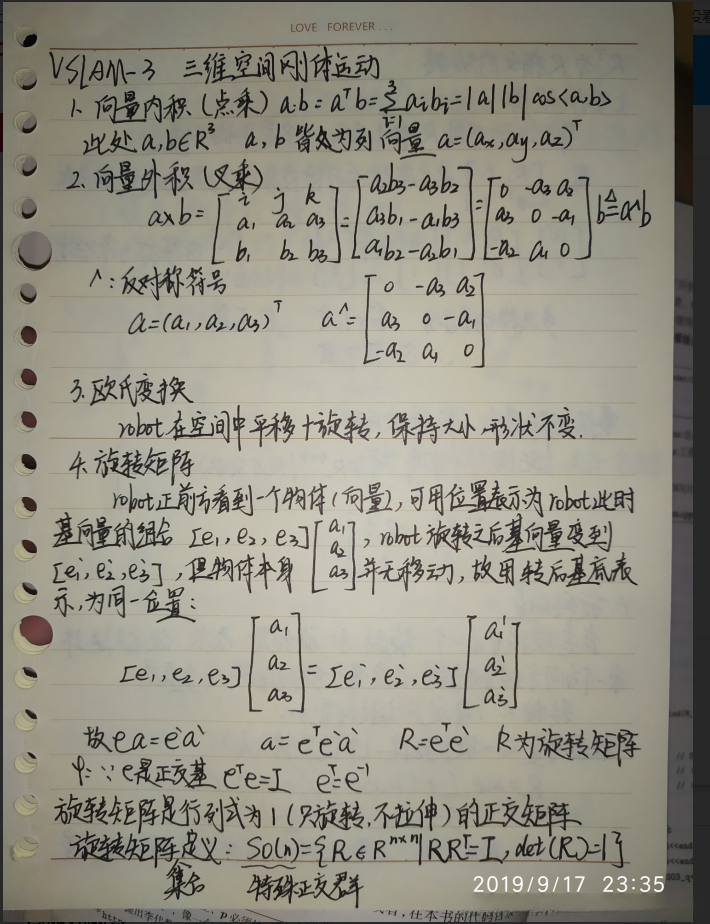 LOVE FOREVER...
VSLAM-3 三维空间刚体运动
1. 向量内积(点乘) a·b = aᵀb = Σ³ᵢ₌₁ aᵢbᵢ = |a||b| cos<a,b>
此处 a,b∈R³ a,b 皆处为列向量 a=(ax,ay,az)ᵀ
2. 向量外积(叉乘)
a×b = [i j k; a₁ a₂ a₃; b₁ b₂ b₃] = [a₂b₃-a₃b₂; a₃b₁-a₁b₃; a₁b₂-a₂b₁] = [0 -a₃ a₂; a₃ 0 -a₁; -a₂ a₁ 0] b ≜ a^b
^:反对称符号
a=(a₁,a₂,a₃)ᵀ a^=[0 -a₃ a₂; a₃ 0 -a₁; -a₂ a₁ 0]
3. 欧氏变换
robot在空间中平移+旋转,保持大小,形状不变.
4. 旋转矩阵
robot正前方看到一个物体(向量),可用位置表示为robot此时
基向量的组合 [e₁,e₂,e₃][a₁; a₂; a₃],robot旋转之后基向量变到
[e₁',e₂',e₃'],但物体本身并无移动,故用转后基底表
示,为同一位置:
[e₁,e₂,e₃][a₁; a₂; a₃] = [e₁',e₂',e₃'][a₁'; a₂'; a₃']
故ea=e'a' a=eᵀe'a' R=eᵀe' R为旋转矩阵
∵e是正交基 eᵀe=I eᵀ=e⁻¹
旋转矩阵是行列式为1(只旋转,不拉伸)的正交矩阵
旋转矩阵定义: SO(n)={R∈Rⁿˣⁿ|RRᵀ=I,det(R)=1}
集合 特殊正交群
2019/9/17 23:35